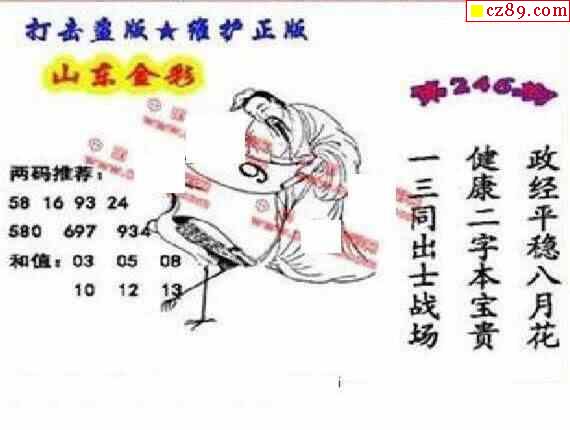 cz89.com
打击盗版★维护正版
山东金彩
第246期
两码推荐:
58 16 93 24
580 697 934
和值: 03 05 08
10 12 13
9
政经平稳八月花
健康二字本宝贵
一三同出士战场